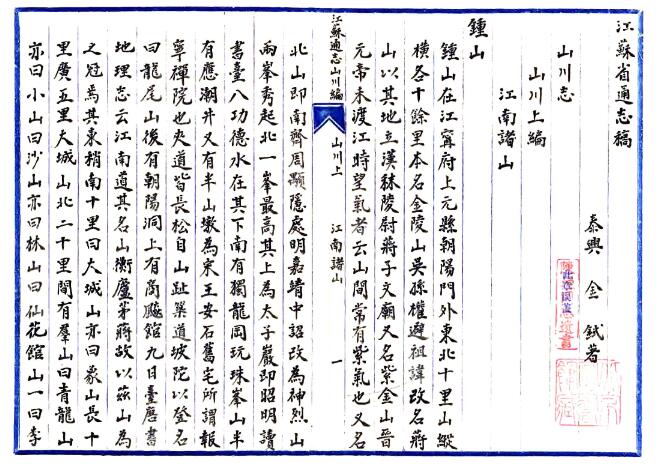 江蘇省通志稿
泰興 金鉽著
山川志
山川上編
江南諸山
鍾山
鍾山在江寧府上元縣朝陽門外東北十里山縱
橫各十餘里本名金陵山吳孫權避祖諱改名蔣
山以其地立漢秣陵尉蔣子文廟又名紫金山晉
元帝未渡江時望氣者云山間常有紫氣也又名
江蘇通志山川編
山川上
江南諸山
一
北山即南齊周顒隱處明嘉靖中詔改為神烈山
兩峯秀起北一峯最高其上為太子巖即昭明讀
書臺八功德水在其下南有獨龍岡玩珠峯山半
有應潮井又有半山墩為宋王安石舊宅所謂報
寧禪院也夾道皆長松自山趾築道坡陀以登名
曰龍尾山後有朝陽洞上有商飈館九日臺唐書
地理志云江南道其名山衡廬茅蔣故以茲山為
之冠焉其東稍南十里曰大城山亦曰象山長十
里廣五里大城山北二十里間有羣山曰青龍山
亦曰小山曰沙山亦曰林山曰仙花館山一曰李